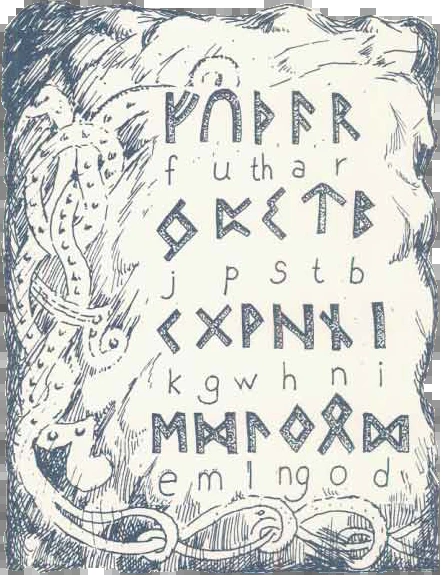 ᚠ ᚢ ᚦ ᚨ ᚱ
f u th a r
ᛃ ᛈ ᛊ ᛏ ᛒ
j p s t b
ᚲ ᚷ ᚹ ᚺ ᚾ ᛁ
k g w h n i
ᛖ ᛗ ᛚ ᛜ ᛟ ᛞ
e m l ng o d